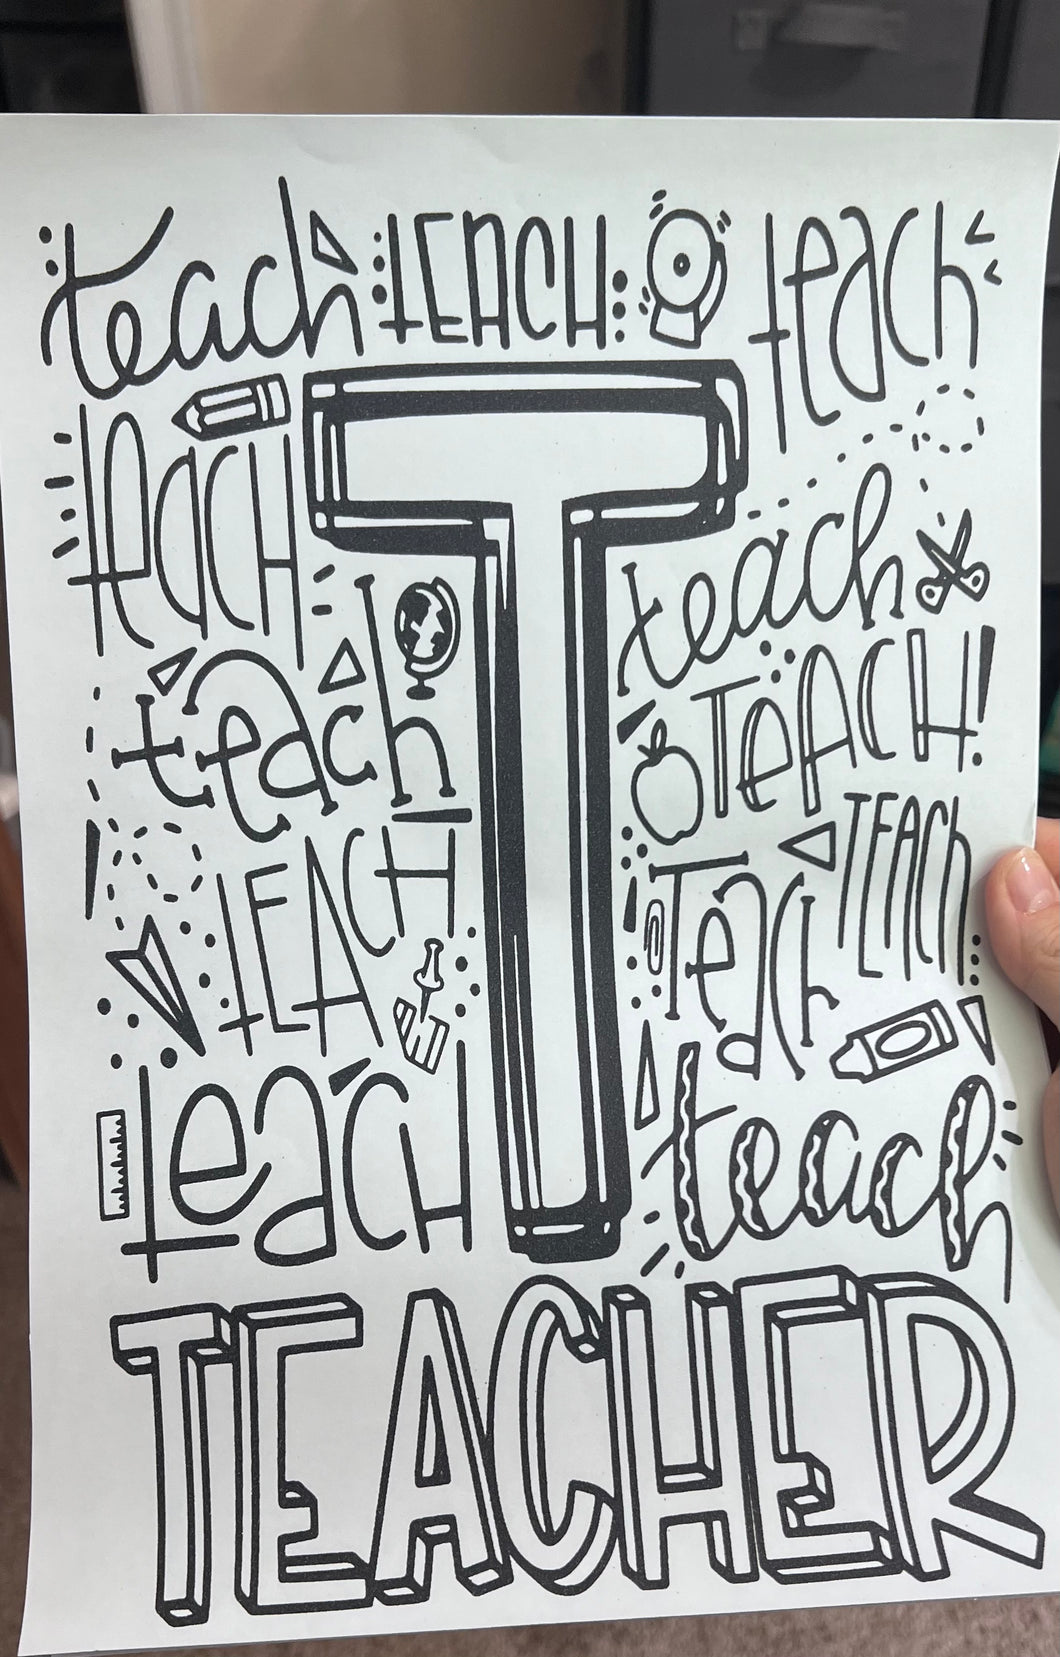 teach TEACH teach
teach
T
teach
teach
TeACH!
TEACH
Teach
TEACH
teach
teach
TEACHER